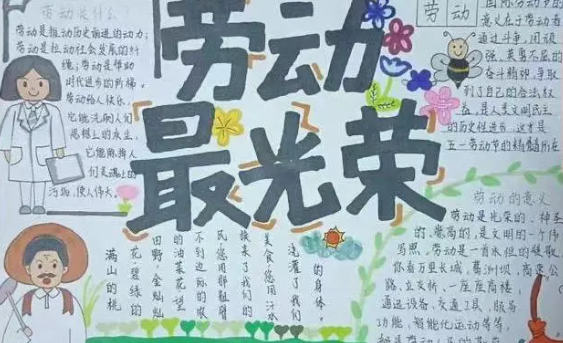 劳动是什么?
劳动是推动历史前进的动力;
劳动是拉动社会发展的纤
绳;劳动是帮助
时代进步的阶梯。
劳动给人快乐,
它能洗刷人们
思想上的灰尘,
它能廓掉人
们灵魂上的
污物,使人伟大。
劳动
最光荣
劳 动
国际劳动节的
意义在于劳动者
通过斗争,用顽
强、英勇不屈的
奋斗精神,争取
到了自己的合法权
益,是人类文明民主
的历史性进步,这才是
五一劳动节的精髓所在
满山的桃
花,碧绿的
田野,金灿灿
的油菜花望
不到边际的
民,您用那粗糙
换来了我们
美食,您用汗水
浇灌了我们
的身体。
劳动的意义
劳动是光荣的、神圣
的、崇高的,是文明的一个伟
写照,劳动是一首永恒的赞歌
你看万里长城、葛洲坝、高速公
路、立交桥、一座座高楼、
通迅设备、交通工具、服务
功能、智能化运动等等,
都是劳动人民的